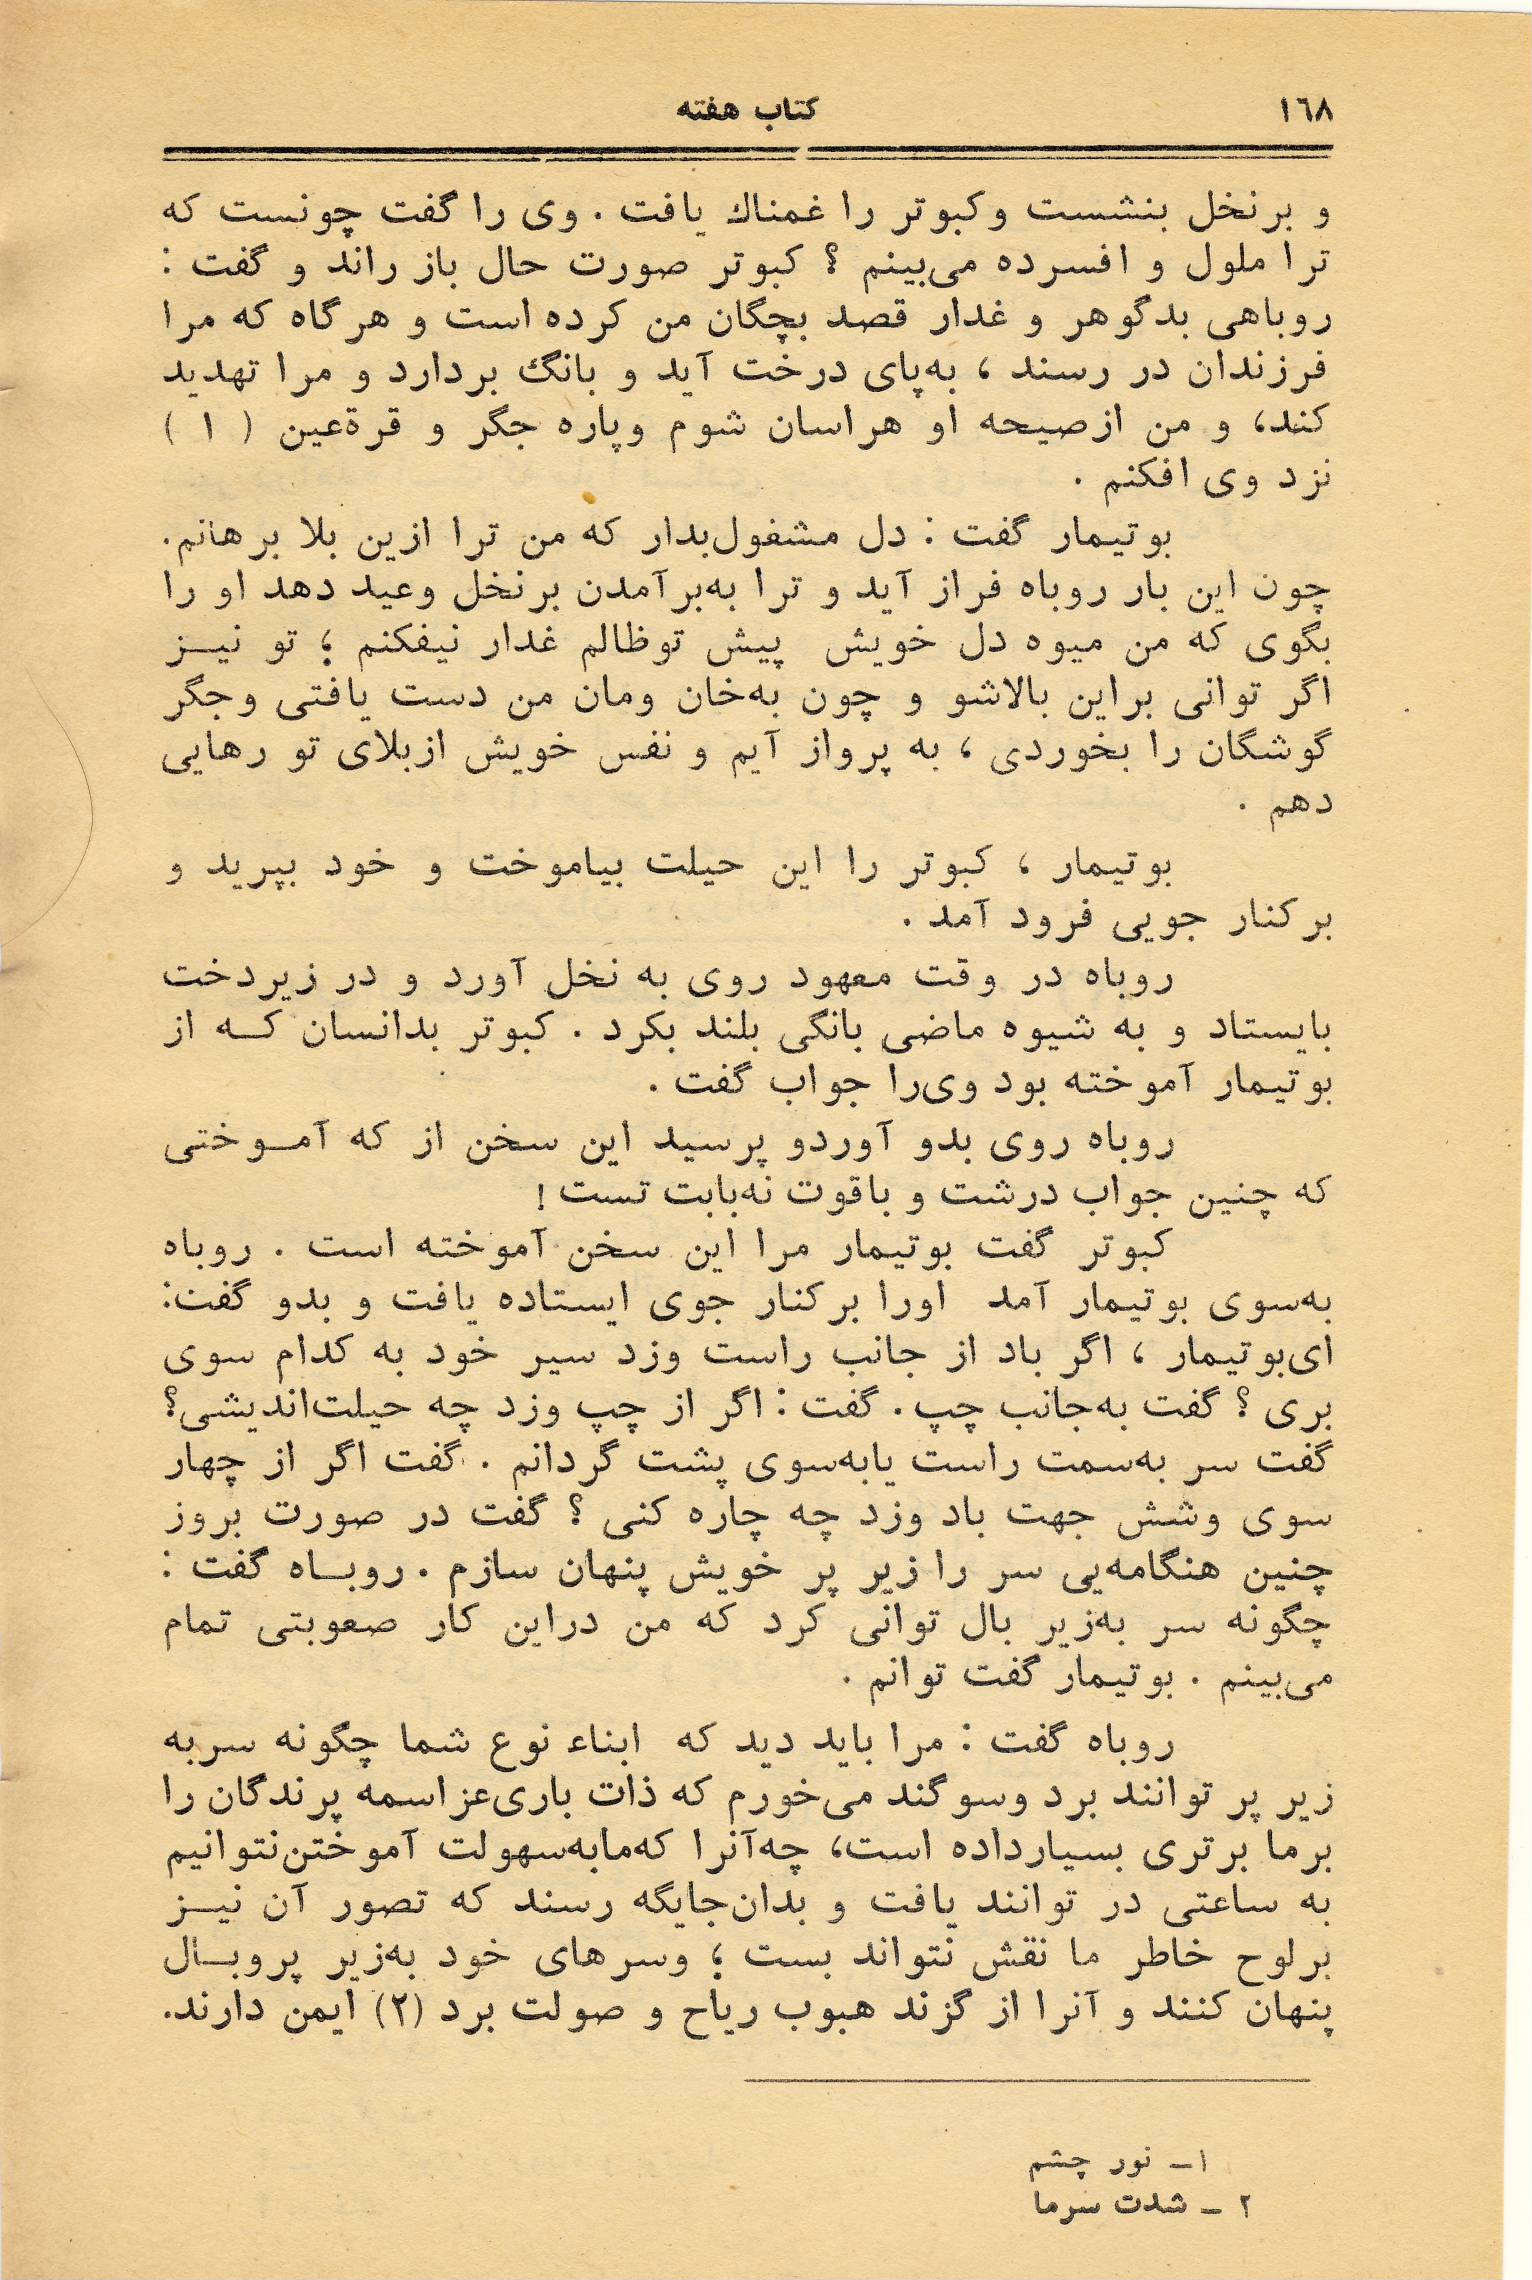 ۱۶۸
کتاب هفته
و برنخل بنشست وکبوتر را غمناك یافت . وی را گفت چونست که
ترا ملول و افسرده می‌بینم ؟ کبوتر صورت حال باز راند و گفت :
روباهی بدگوهر و غدار قصد بچگان من کرده است و هرگاه که مرا
فرزندان در رسند ، به‌پای درخت آید و بانگ بردارد و مرا تهدید
کند، و من ازصیحه او هراسان شوم وپاره جگر و قرةعین ( ۱ )
نزد وی افکنم .
بوتیمار گفت : دل مشغول‌بدار که من ترا ازین بلا برهانم.
چون این بار روباه فراز آید و ترا به‌برآمدن برنخل وعید دهد او را
بگوی که من میوه دل خویش پیش توظالم غدار نیفکنم ؛ تو نیــز
اگر توانی براین بالاشو و چون به‌خان ومان من دست یافتی وجگر
گوشگان را بخوردی ، به پرواز آیم و نفس خویش ازبلای تو رهایی
دهم .
بوتیمار ، کبوتر را این حیلت بیاموخت و خود بپرید و
برکنار جویی فرود آمد .
روباه در وقت معهود روی به نخل آورد و در زیردخت
بایستاد و به شیوه ماضی بانگی بلند بکرد . کبوتر بدانسان کــه از
بوتیمار آموخته بود وی‌را جواب گفت .
روباه روی بدو آوردو پرسید این سخن از که آمــوختی
که چنین جواب درشت و باقوت نه‌بابت تست !
کبوتر گفت بوتیمار مرا این سخن آموخته است . روباه
به‌سوی بوتیمار آمد اورا برکنار جوی ایستاده یافت و بدو گفت:
ای‌بوتیمار ، اگر باد از جانب راست وزد سیر خود به کدام سوی
بری ؟ گفت به‌جانب چپ. گفت : اگر از چپ وزد چه حیلت‌اندیشی؟
گفت سر به‌سمت راست یابه‌سوی پشت گردانم . گفت اگر از چهار
سوی وشش جهت باد وزد چه چاره کنی ؟ گفت در صورت بروز
چنین هنگامه‌یی سر را زیر پر خویش پنهان سازم . روبــاه گفت :
چگونه سر به‌زیر بال توانی کرد که من دراین کار صعوبتی تمام
می‌بینم . بوتیمار گفت توانم .
روباه گفت : مرا باید دید که ابناء نوع شما چگونه سربه
زیر پر توانند برد وسوگند می‌خورم که ذات باری‌عزاسمه پرندگان را
برما برتری بسیارداده است، چه‌آنرا که‌مابه‌سهولت آموختن‌نتوانیم
به ساعتی در توانند یافت و بدان‌جایگه رسند که تصور آن نیــز
برلوح خاطر ما نقش نتواند بست ؛ وسرهای خود به‌زیر پروبــال
پنهان کنند و آنرا از گزند هبوب ریاح و صولت برد (۲) ایمن دارند.
۱ــ نور چشم
۲ ــ شدت سرما